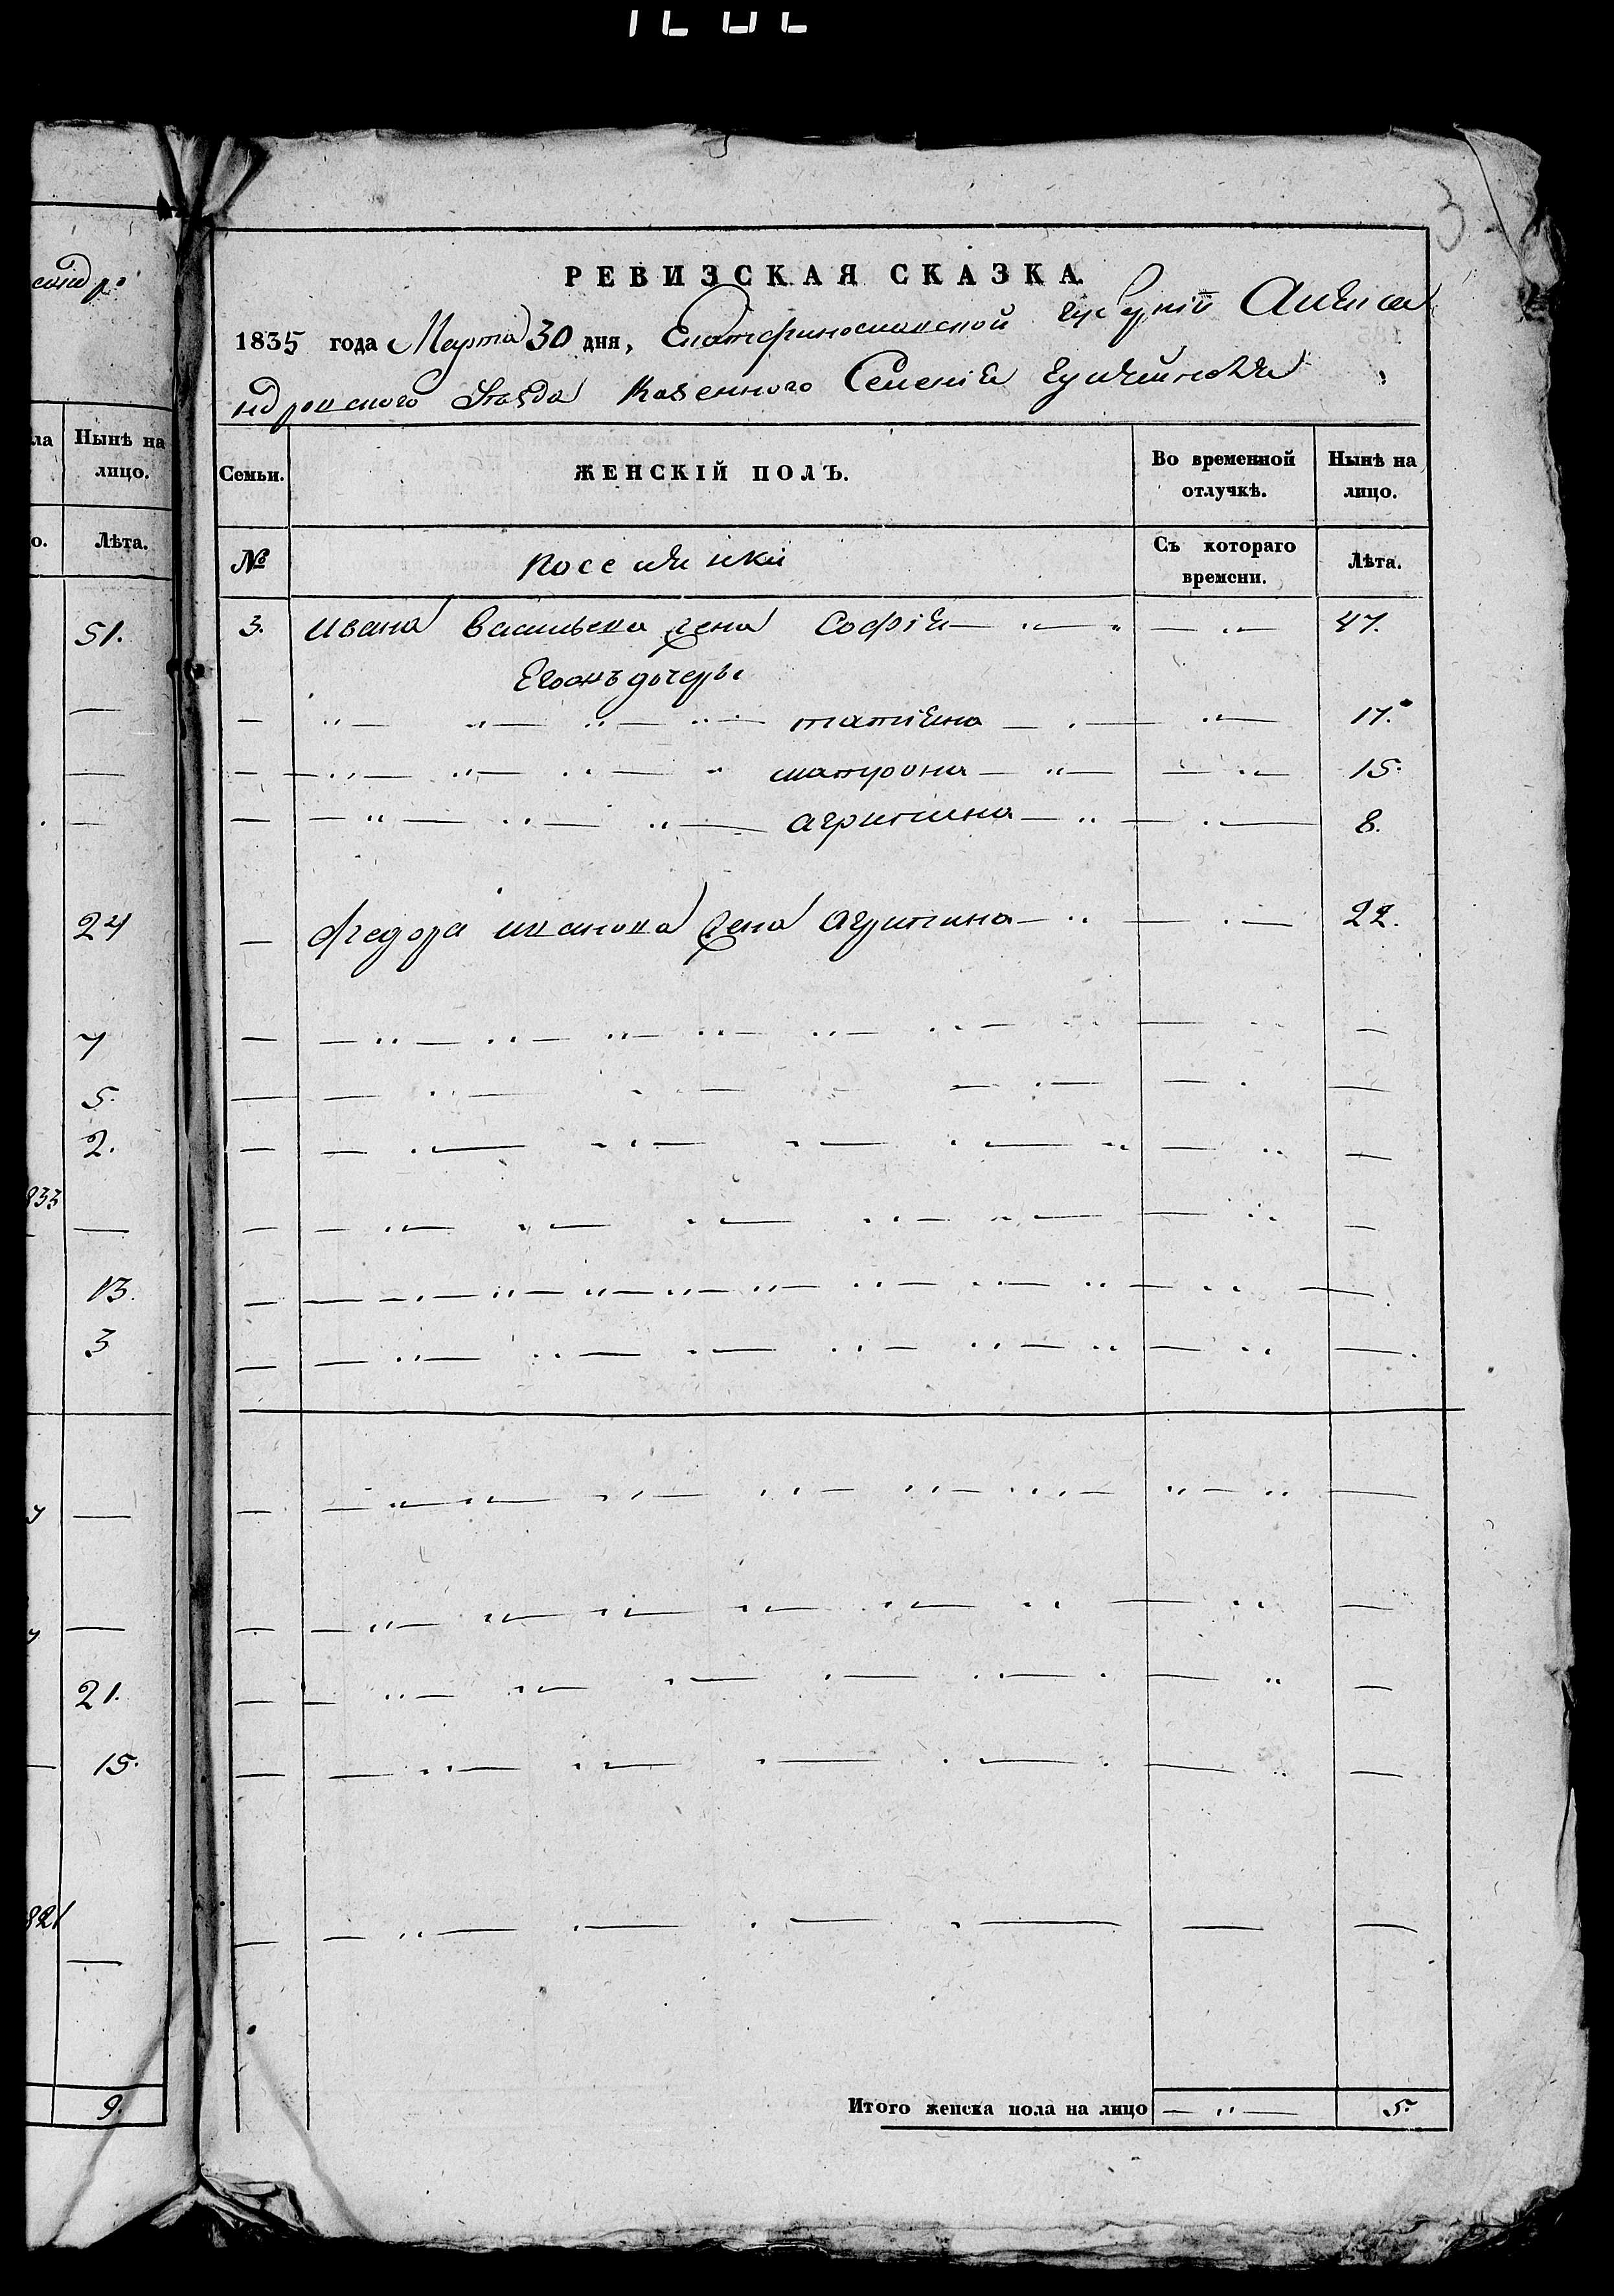 3
РЕВИЗСКАЯ СКАЗКА.
1835 года Марта 30 дня, Екатеринославской губерніи Алекса
ндровскаго уѣзда Казенного Селенія Гуляйполя
Семьи.
ЖЕНСКІЙ ПОЛЪ.
Во временной отлучкѣ.
Нынѣ на лицо.
№
Поселянки
Съ котораго времени.
Лѣта.
3. Ивана Васильева жена Софія 47.
Его дочеры
татіяна 17.
матрона 15.
агрипина 8.
Федора иванова жена агрипина 22.
Итого женска пола на лицо 5.
сандро
ла
Нынѣ на лицо.
о.
Лѣта.
51.
24
7
5.
2.
833
13.
3
21.
15.
821
9.